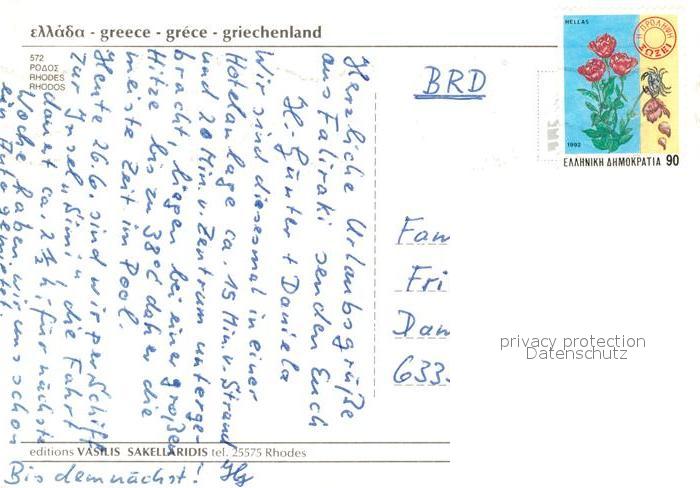 ελλάδα - greece - gréce - griechenland
572
ΡΟΔΟΣ
RHODES
RHODOS
HELLAS
Η ΠΡΟΛΗΨΗ
ΣΩΖΕΙ
1992
ΕΛΛΗΝΙΚΗ ΔΗΜΟΚΡΑΤΙΑ 90
BRD
Herzliche Urlaubsgrüße
aus Faliraki senden Euch
H.-Günter + Daniela
Wir sind diesesmal in einer
Hotelanlage ca. 15 Min. v. Strand
und 20 Min. v. Zentrum unterge-
bracht, liegen bei einer großen
Hitze bis zu 38°C daher die
meiste Zeit im Pool.
Heute 26.6. sind wir per Schiff
zur Insel "Simi", die Fahrt
dauert ca. 2 1/2 h, für nächste
Woche haben wir uns schon
ein Auto gemietet.
Bis demnächst!
Fam
Fri
Dan
633.
privacy protection
Datenschutz
editions VASILIS SAKELLARIDIS tel. 25575 Rhodes